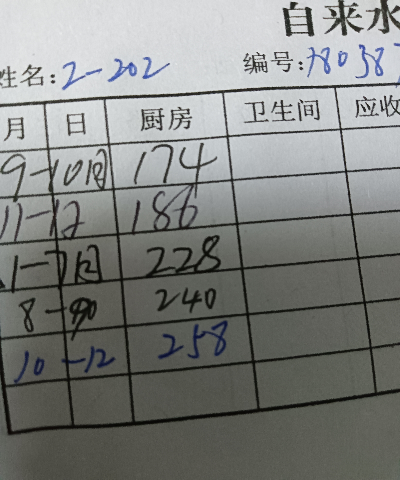 自来水
姓名:2-202 编号:
月 日 厨房 卫生间 应收
9-10月 174
11-12 186
1-7月 228
8- 240
10-12 258